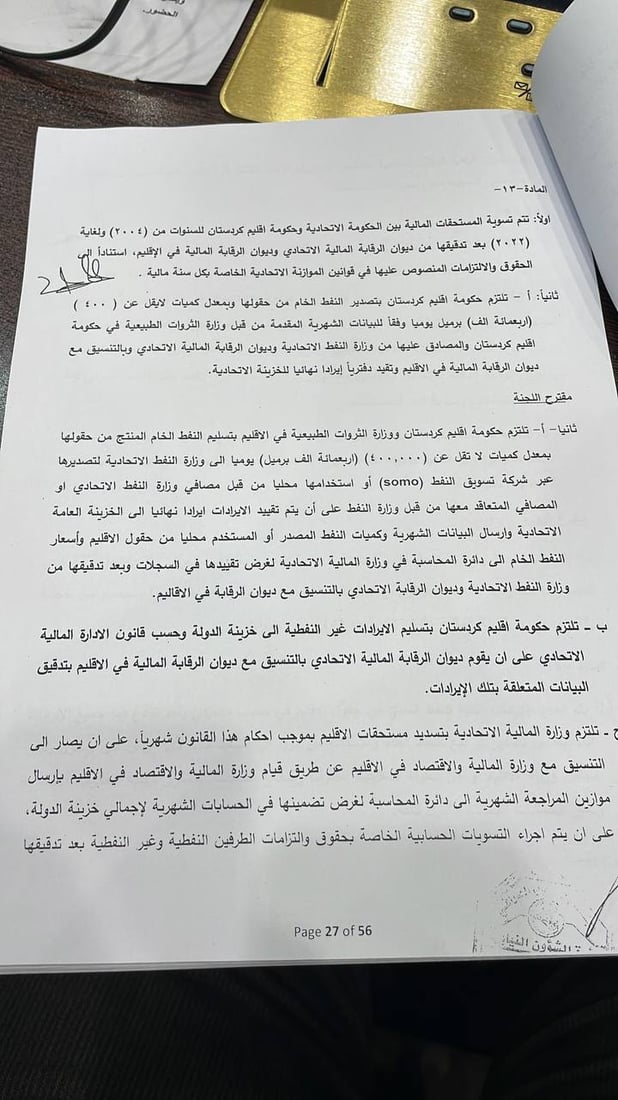 الحضور.
المادة-١٣-
اولاً: تتم تسوية المستحقات المالية بين الحكومة الاتحادية وحكومة اقليم كردستان للسنوات من (٢٠٠٤) ولغاية
(٢٠٢٢) بعد تدقيقها من ديوان الرقابة المالية الاتحادي وديوان الرقابة المالية في الإقليم، استناداً الى
الحقوق والالتزامات المنصوص عليها في قوانين الموازنة الاتحادية الخاصة بكل سنة مالية .
ثانياً: أ - تلتزم حكومة اقليم كردستان بتصدير النفط الخام من حقولها وبمعدل كميات لايقل عن ( ٤٠٠ )
(اربعمائة الف) برميل يوميا وفقاً للبيانات الشهرية المقدمة من قبل وزارة الثروات الطبيعية في حكومة
اقليم كردستان والمصادق عليها من وزارة النفط الاتحادية وديوان الرقابة المالية الاتحادي وبالتنسيق مع
ديوان الرقابة المالية في الاقليم وتقيد دفترياً إيرادا نهائيا للخزينة الاتحادية.
مقترح اللجنة
ثانيا- أ- تلتزم حكومة اقليم كردستان ووزارة الثروات الطبيعية في الاقليم بتسليم النفط الخام المنتج من حقولها
بمعدل كميات لا تقل عن (٤٠٠,٠٠٠) (اربعمائة الف برميل) يوميا الى وزارة النفط الاتحادية لتصديرها
عبر شركة تسويق النفط (somo) أو استخدامها محليا من قبل مصافي وزارة النفط الاتحادي او
المصافي المتعاقد معها من قبل وزارة النفط على أن يتم تقييد الايرادات ايرادا نهائيا الى الخزينة العامة
الاتحادية وارسال البيانات الشهرية وكميات النفط المصدر أو المستخدم محليا من حقول الاقليم وأسعار
النفط الخام الى دائرة المحاسبة في وزارة المالية الاتحادية لغرض تقييدها في السجلات وبعد تدقيقها من
وزارة النفط الاتحادية وديوان الرقابة الاتحادي بالتنسيق مع ديوان الرقابة في الاقاليم.
ب - تلتزم حكومة اقليم كردستان بتسليم الايرادات غير النفطية الى خزينة الدولة وحسب قانون الادارة المالية
الاتحادي على ان يقوم ديوان الرقابة المالية الاتحادي بالتنسيق مع ديوان الرقابة المالية في الاقليم بتدقيق
البيانات المتعلقة بتلك الإيرادات.
ج - تلتزم وزارة المالية الاتحادية بتسديد مستحقات الاقليم بموجب احكام هذا القانون شهرياً، على ان يصار الى
التنسيق مع وزارة المالية والاقتصاد في الاقليم عن طريق قيام وزارة المالية والاقتصاد في الاقليم بإرسال
موازين المراجعة الشهرية الى دائرة المحاسبة لغرض تضمينها في الحسابات الشهرية لإجمالي خزينة الدولة،
على ان يتم اجراء التسويات الحسابية الخاصة بحقوق والتزامات الطرفين النفطية وغير النفطية بعد تدقيقها
Page 27 of 56
الشؤون